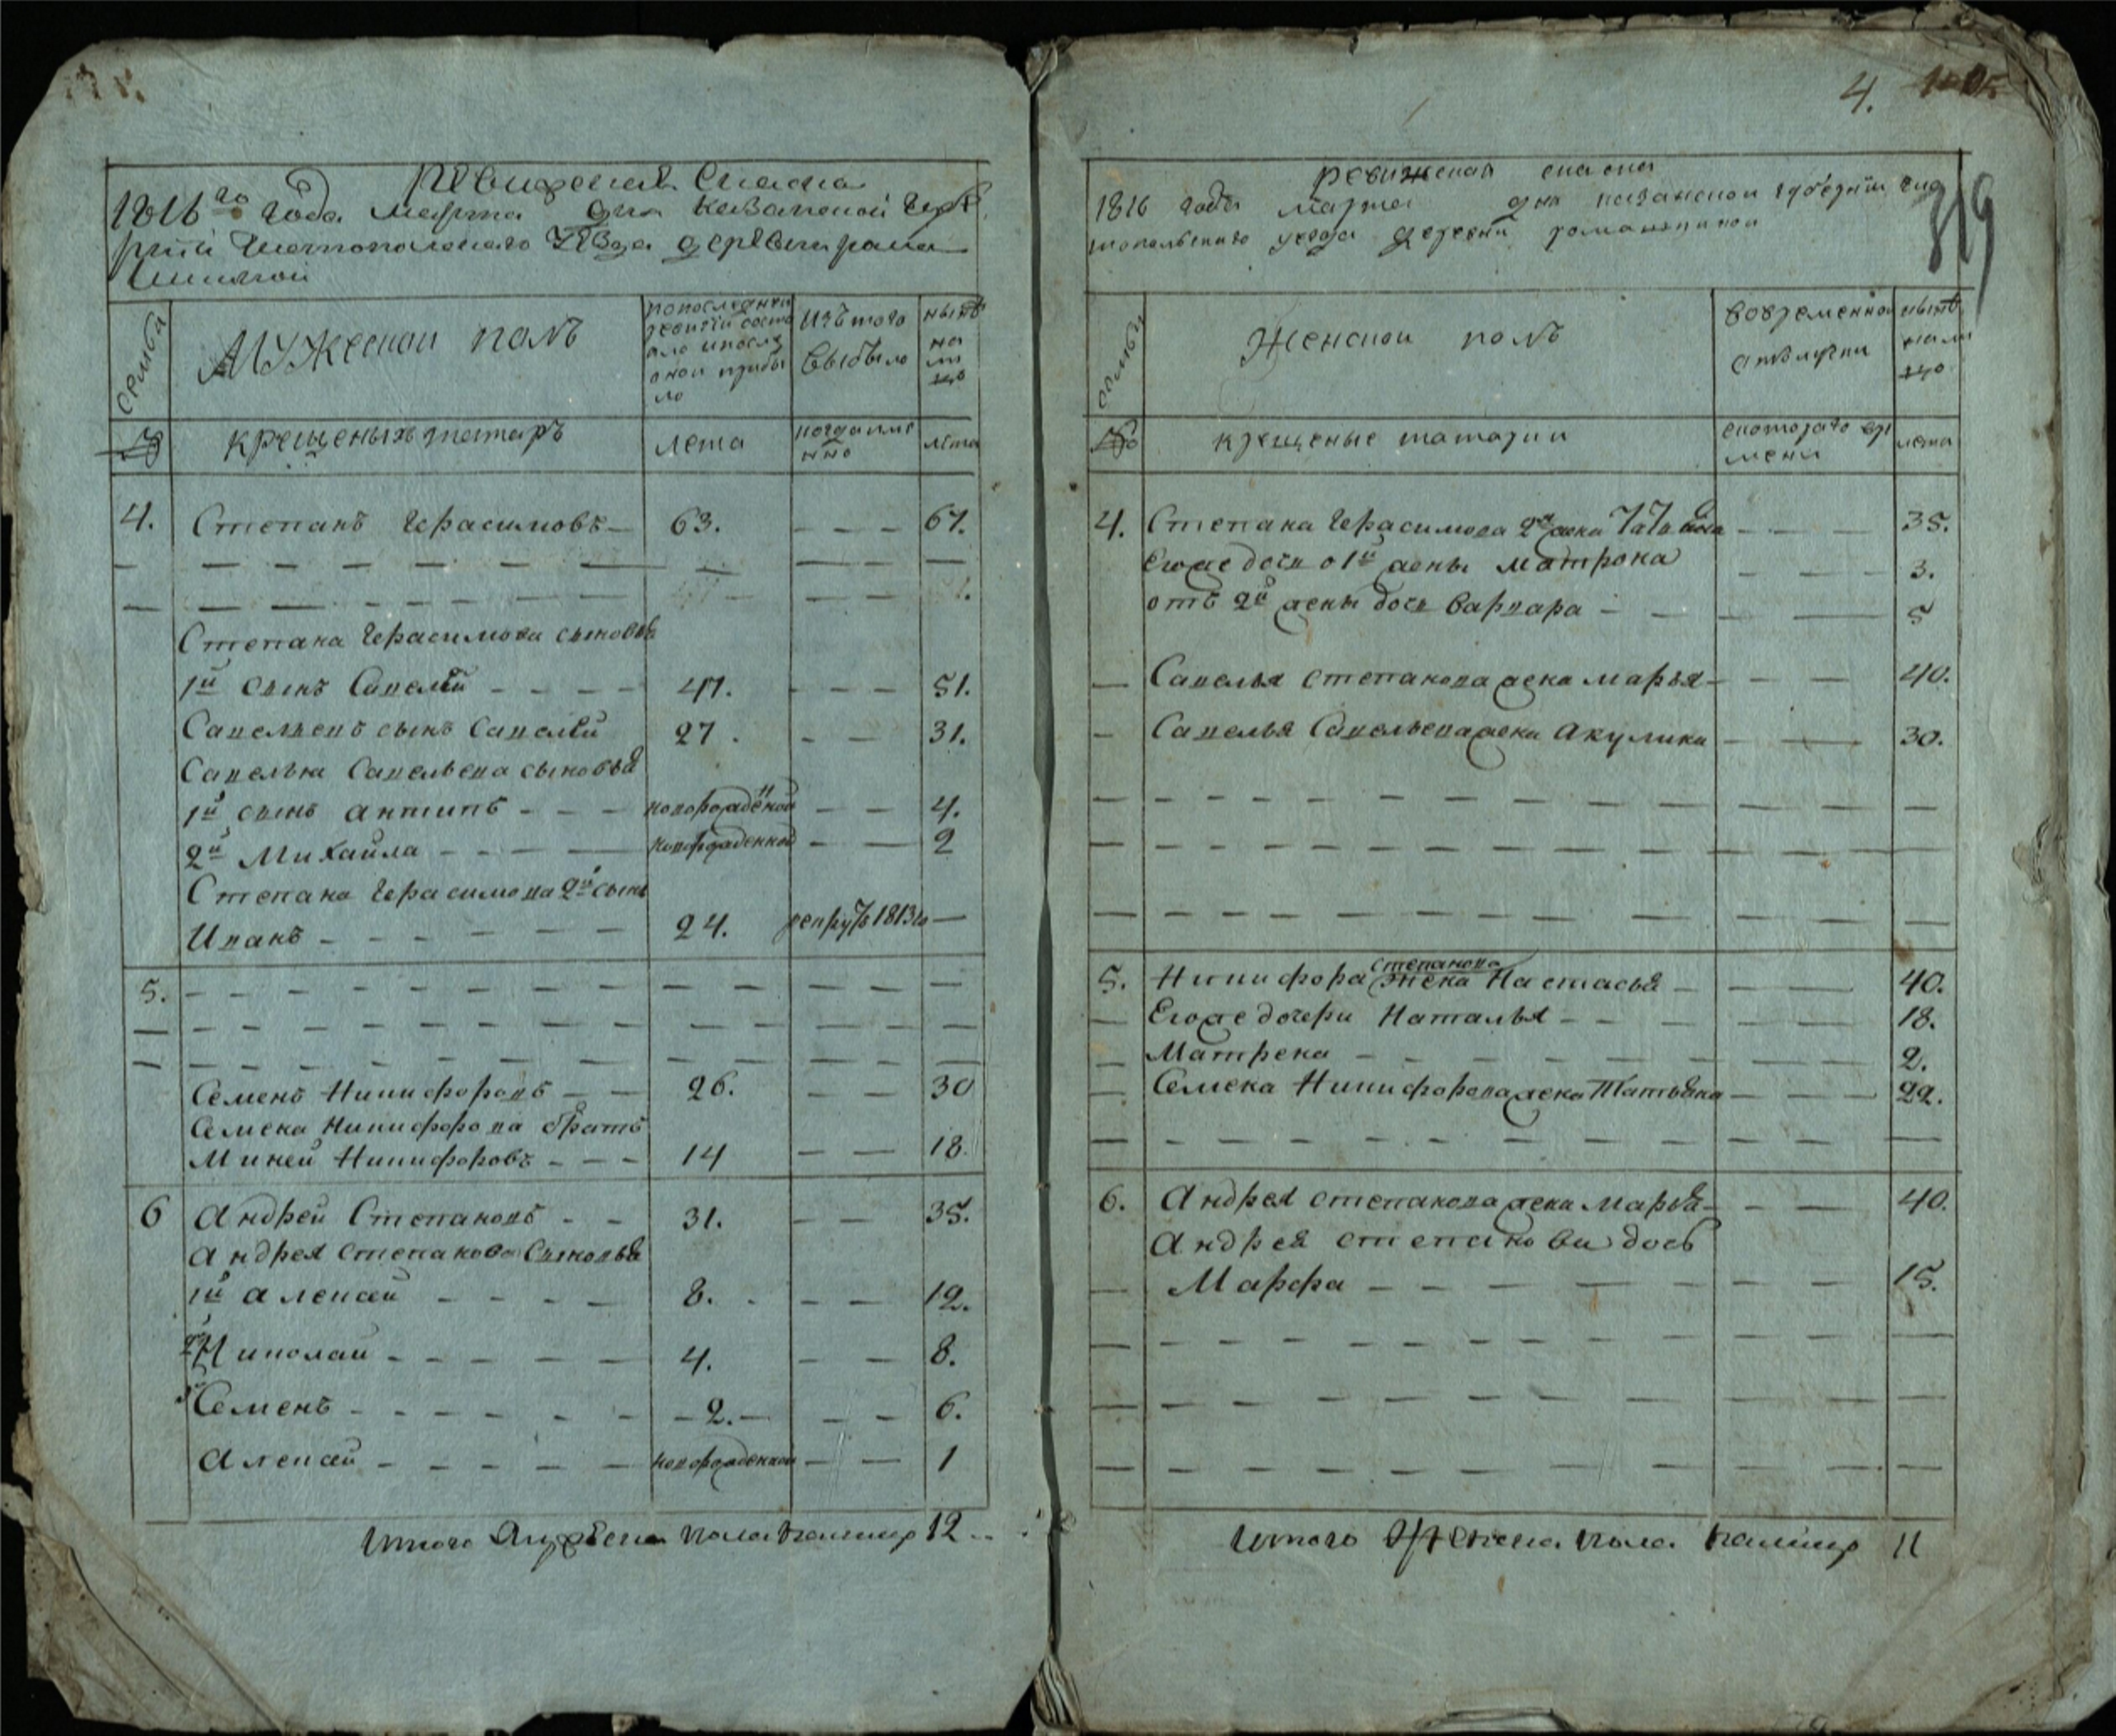 Ревижская Сказка
1816го года Марта дня Казанской Губе
рнiи Чистопольскаго Уѣзда деревни Рома
шкиной
семьи
Мужескои полъ
попоследнеи
ревизiи состо
яло ипосле
оной прибы
ло
Изъ того
выбыло
нынѣ
на
ли
цо
крещеныхъ татаръ
лета
когда име
нно
лета
4. Степанъ Герасимовъ 63. — — — 67.
Степана Герасимова сыновья
1й сынъ Савелей 47. — — — 51.
Савельевъ сынъ Савелей 27. — — 31.
Савелья Савельева сыновья
1й сынъ антипъ — — — новорожденой — — 4.
2й Михайла — — — новорожденной — — 2
Степана Герасимова 2й сынъ
Иванъ — — — 24. рекрутъ 1813го —
5.
Семенъ Никифоровъ — — 26. — — 30
Семена Никифорова братъ
Миней Никифоровъ — — — 14 — — 18.
6 Андрей Степановъ — — 31. — — 35.
Андрея степанова Сыновья
1й алексей — — — 8. — — 12.
2й Николай — — — 4. — — 8.
3й Семенъ — — — 2. — — 6.
Алексей — — — новорожденной — — 1
Итого Мужеска пола налицо 12
4.
319
ревижская сказка
1816 года марта дня казанской губернiи чис
топольскаго уезда деревни ромашкиной
семьи
Женской полъ
вовременной
отлучки
нынѣ
нали
цо
крещеные татарки
скоторого вре
мени
лета
4. Степана Герасимова 2я жена — — — 35.
Егоже дочь о 1й жены Матрона — — — 3.
отъ 2й жены дочь Варвара — — — 5
Савелья степанова жена марья — — — 40.
Савелья Савельева жена Акулина — — 30.
степанова
5. Никифора жена Настасья — — — 40.
Егоже дочери Наталья — — — 18.
Матрена — — — 2.
Семена Никифорова жена Татьяна — — — 22.
6. Андрея степанова жена Марья — — — 40.
Андрея степанова дочь
Марфа — — — 15.
Итого Женска пола налицо 11